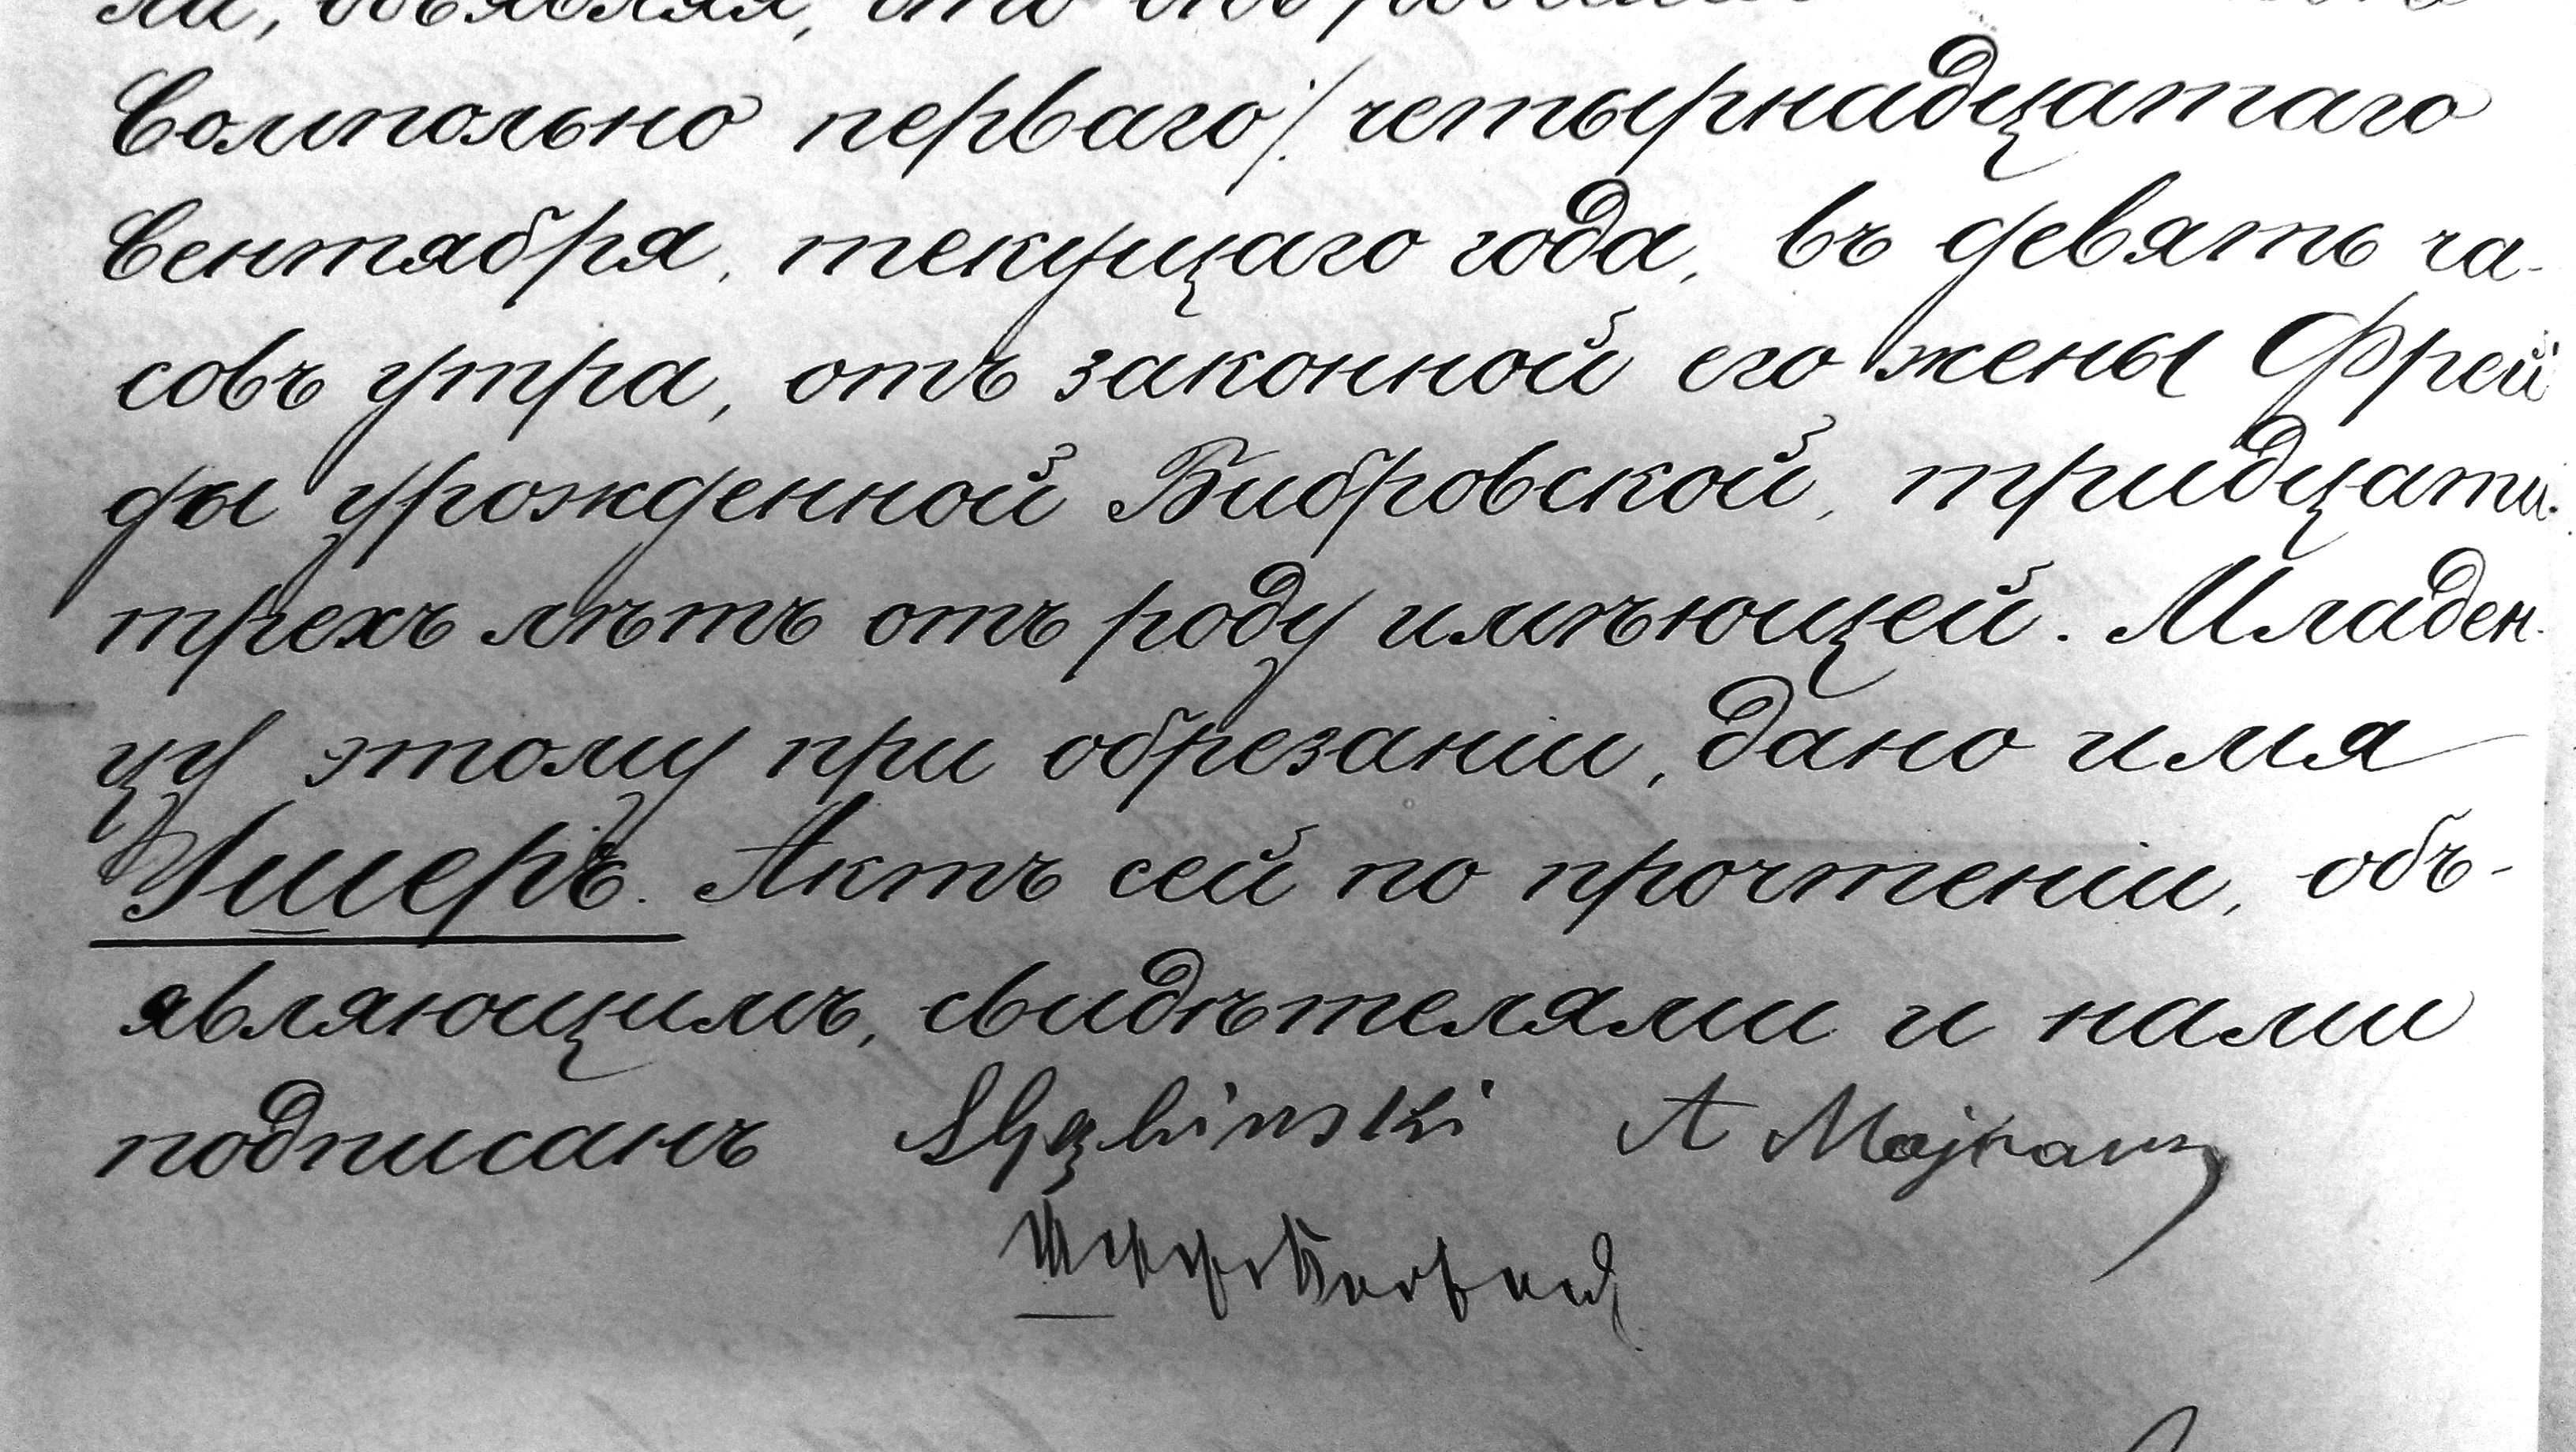 ли, объявляя, что онъ родился
Сомпольно перваго / четырнадцатаго
Сентября, текущаго года, въ девять ча-
совъ утра, отъ законной его жены Фрей
ды урожденной Бибровской, тридцати.
трехъ лѣтъ отъ роду имѣющей. Младен-
цу этому при обрезаніи, дано имя
Ушеръ. Актъ сей по прочтеніи, объ-
являющимъ, свидѣтелями и нами
подписанъ A Majranz